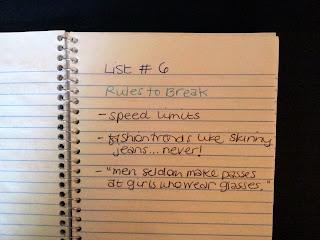 List # 6
Rules to Break
- speed limits
- fashion trends like skinny
jeans... never!
- "men seldom make passes
at girls who wear glasses."